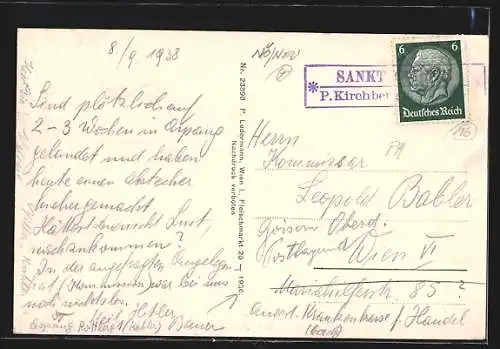 8/9 1938
Sind plötzlich auf
2-3 Wochen in Aspang
gelandet und haben
heute einen Abstecher
hieher gemacht
Hättest du nicht Lust,
nachzukommen?
In der angefragten Angelegen-
heit (Kommission) war bei uns
noch nichts los.
Heil Hitler
Aspang, Postlag. Bauer
Nr. 23898 P. Ledermann, Wien I., Fleischmarkt 20 — 1936.
Nachdruck verboten
NÖ/NOV
SANKT
*P.Kirchber
6 6
Deutsches Reich
16
Herrn
Kommissar
Leopold Babler
Goisern Oberd.
Postlagernd
Wien VI
Mariahilferstr. 85?
Krankenkasse f. Handel